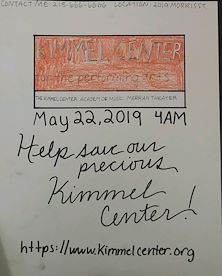 CONTACT ME: 215-666-6606 LOCATION: 2019 MORRIS ST.
KIMMEL CENTER
for the performing arts
THE KIMMEL CENTER ACADEMY OF MUSIC MERRIAM THEATER
May 22, 2019 4AM
Help save our
precious
Kimmel
Center!
https://www.Kimmelcenter.org